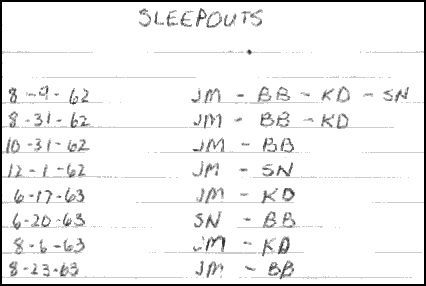 SLEEPOUTS
8-9-62 JM - BB - KD - SN
8-31-62 JM - BB - KD
10-31-62 JM - BB
12-1-62 JM - SN
6-17-63 JM - KD
6-20-63 SN - BB
8-6-63 JM - KD
8-23-63 JM - BB